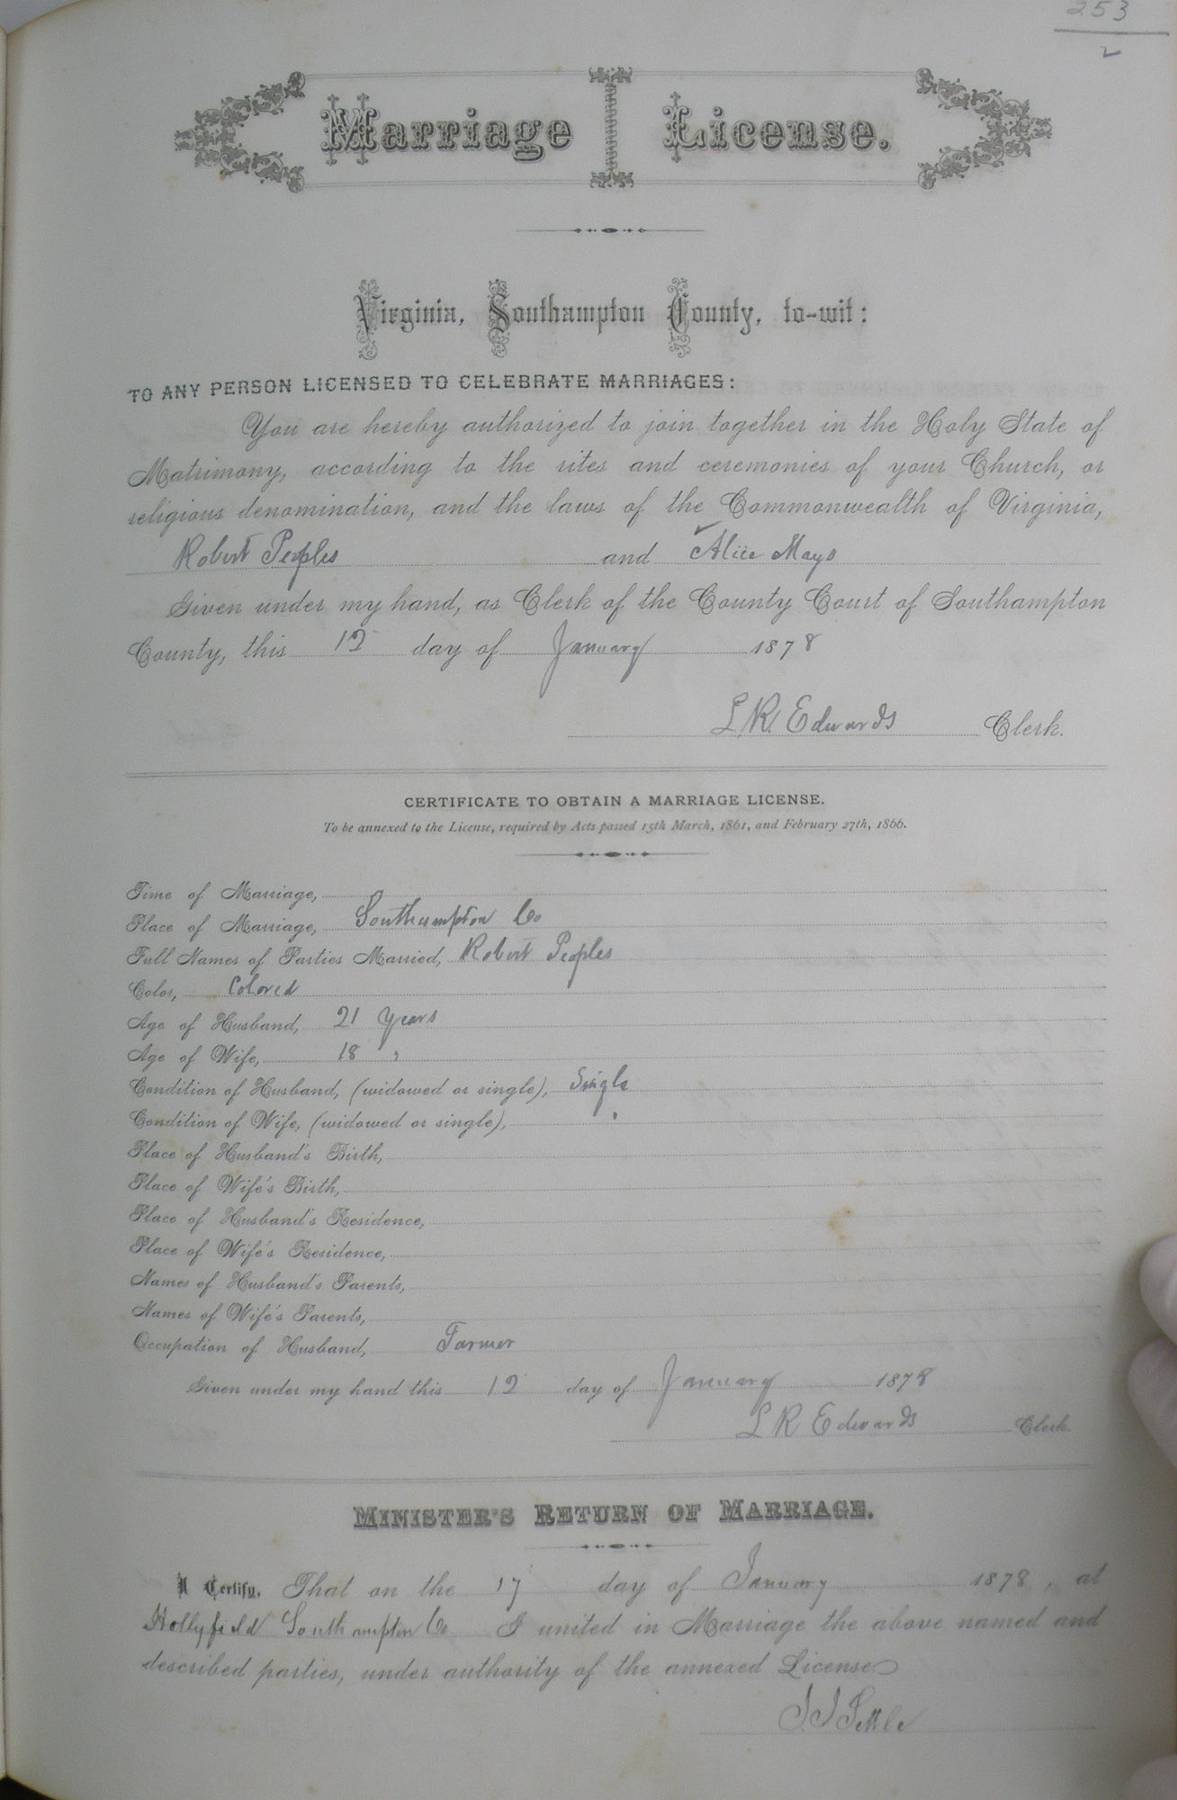 253
Marriage License.
Virginia, Southampton County, to-wit:
TO ANY PERSON LICENSED TO CELEBRATE MARRIAGES:
You are hereby authorized to join together in the Holy State of
Matrimony, according to the rites and ceremonies of your Church, or
religious denomination, and the laws of the Commonwealth of Virginia,
Robert Peoples and Alice Mays
Given under my hand, as Clerk of the County Court of Southampton
County, this 12 day of January 1878
L. R. Edwards Clerk.
CERTIFICATE TO OBTAIN A MARRIAGE LICENSE.
To be annexed to the License, required by Acts passed 15th March, 1861, and February 27th, 1866.
Time of Marriage,
Place of Marriage, Southampton Co
Full Names of Parties Married, Robert Peoples
Color, Colored
Age of Husband, 21 Years
Age of Wife, 18 "
Condition of Husband, (widowed or single), Single
Condition of Wife, (widowed or single), "
Place of Husband's Birth,
Place of Wife's Birth,
Place of Husband's Residence,
Place of Wife's Residence,
Names of Husband's Parents,
Names of Wife's Parents,
Occupation of Husband, Farmer
Given under my hand this 12 day of January 1878
L R Edwards Clerk.
MINISTER'S RETURN OF MARRIAGE.
I Certify, That on the 17 day of January 1878, at
Hollyfield Southampton Co I united in Marriage the above named and
described parties, under authority of the annexed License.